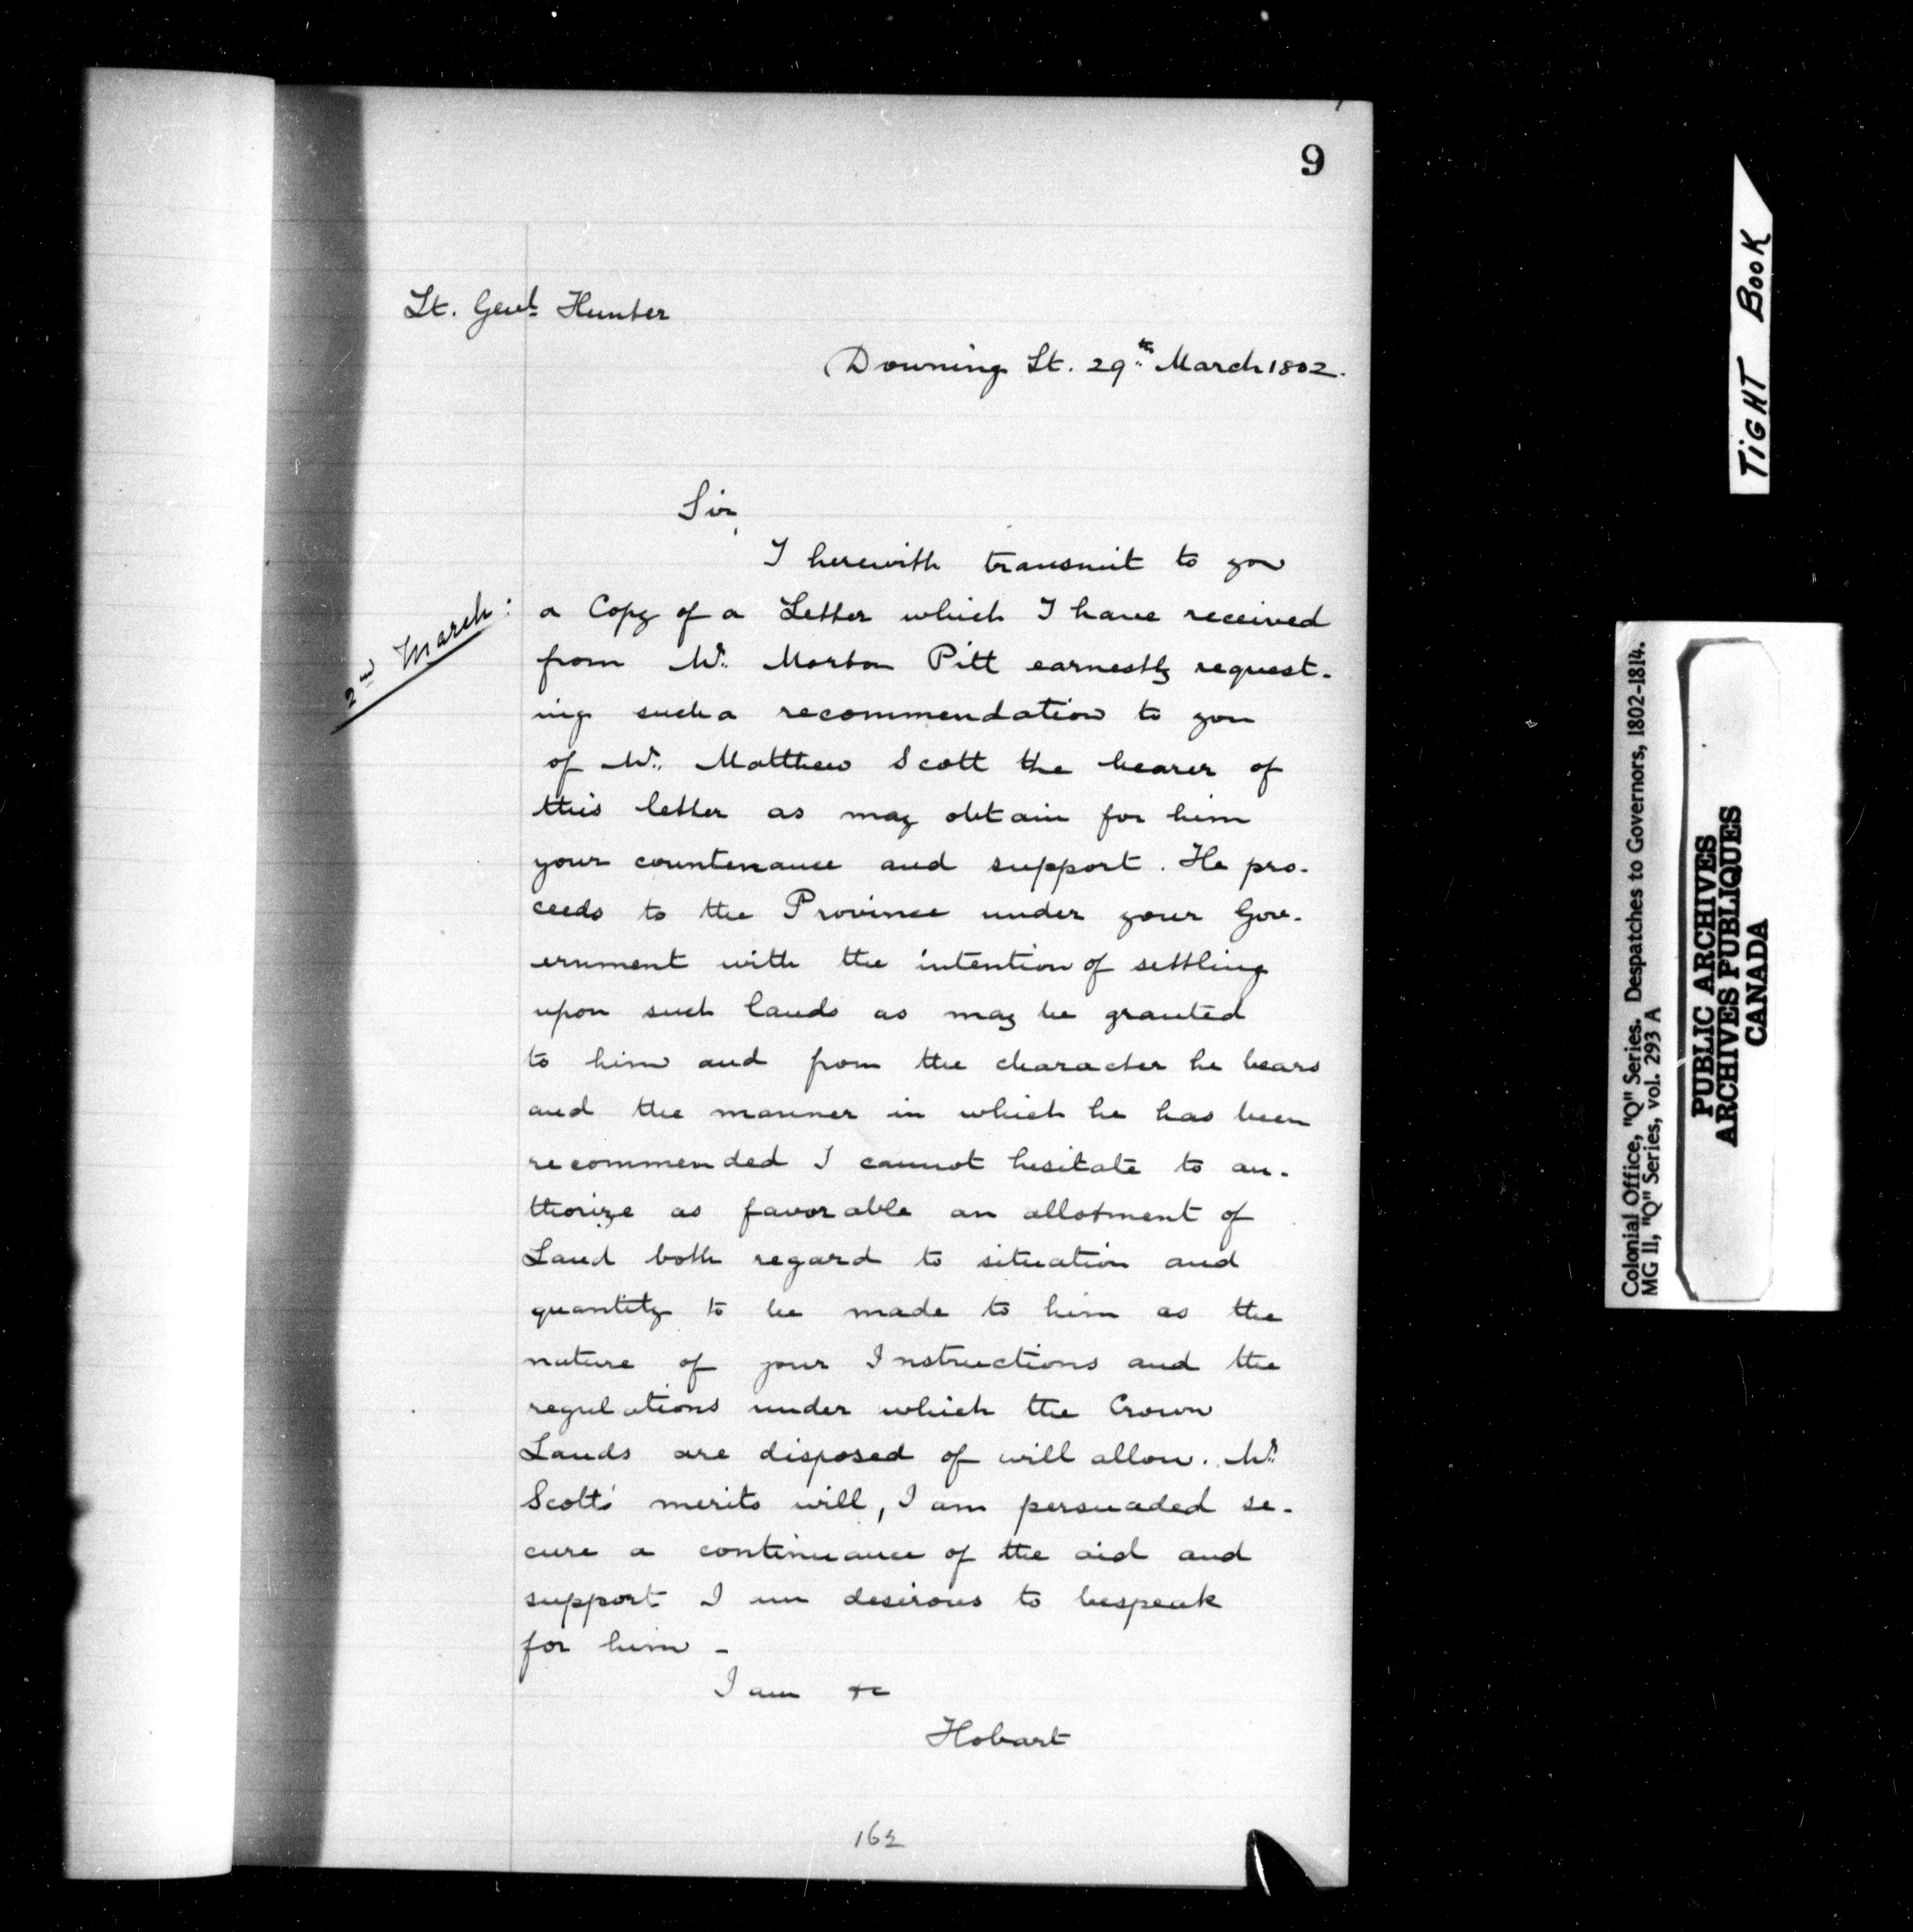 9
Lt. Genl Hunter
Downing St. 29th March 1802.
Sir,
I herewith transmit to you
2nd March:
a Copy of a Letter which I have received
from Mr. Morton Pitt earnestly request-
ing such a recommendation to you
of Mr. Matthew Scott the bearer of
this letter as may obtain for him
your countenance and support. He pro-
ceeds to the Province under your Gov-
ernment with the intention of settling
upon such lands as may be granted
to him and from the character he bears
and the manner in which he has been
recommended I cannot hesitate to au-
thorize as favorable an allotment of
Land both regard to situation and
quantity to be made to him as the
nature of your Instructions and the
regulations under which the Crown
Lands are disposed of will allow. Mr.
Scott's merits will, I am persuaded se-
cure a continuance of the aid and
support I am desirous to bespeak
for him -
I am &c
Hobart
162
TIGHT BOOK
Colonial Office, "Q" Series. Despatches to Governors, 1802-1814.
MG 11, "Q" Series, vol. 293 A
PUBLIC ARCHIVES
ARCHIVES PUBLIQUES
CANADA